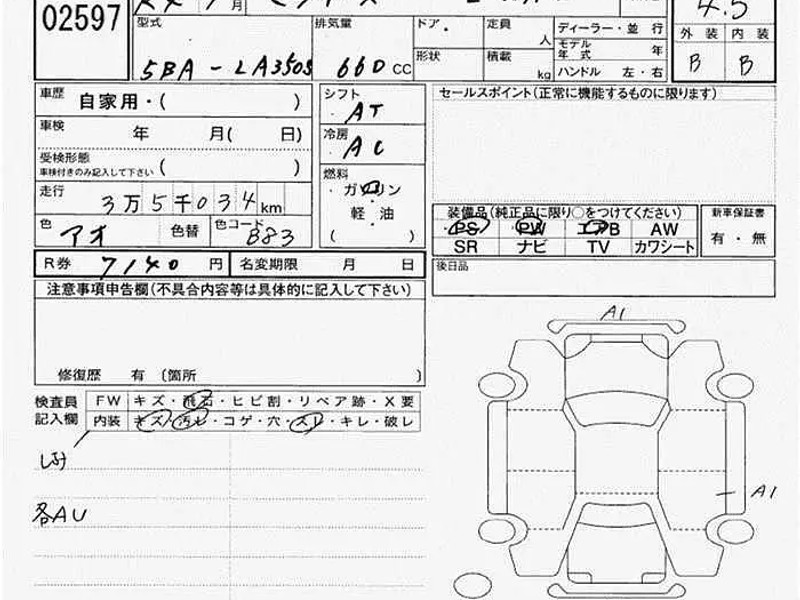 02597
月
4.5
型式
排気量
ドア
定員
人
ディーラー・並 行
外 装 内 装
5BA - LA350S
660 CC
形状
積載
kg
モデル年式 年
ハンドル 左・右
B B
車歴 自家用・( )
シフト
AT
セールスポイント(正常に機能するものに限ります)
車検 年 月( 日)
冷房
AC
受検形態
車検付きのみ記入して下さい ( )
燃料
ガソリン
軽・油
( )
走行 3万5千034km
色 アオ 色替 色コード B83
装備品(純正品に限り○をつけてください)
新車保証書
PS PW エアB AW
有・無
SR ナビ TV カワシート
R券 7140 円 名変期限 月 日
後日品
注意事項申告欄(不具合内容等は具体的に記入して下さい)
A1
修復歴 有 〔箇所 〕
検査員
記入欄
FW キズ・飛石・ヒビ割・リペア跡・X要
内装 キズ・汚レ・コゲ・穴・スレ・キレ・破レ
各AU
A1